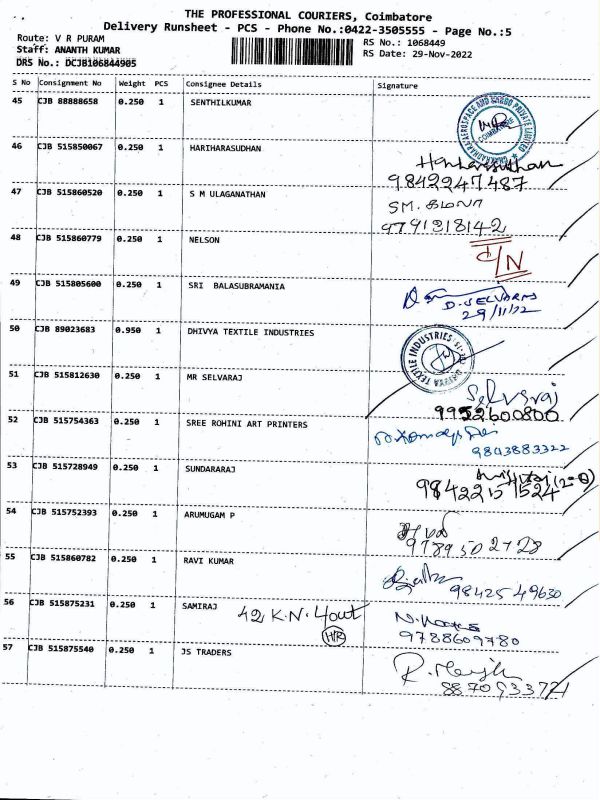 THE PROFESSIONAL COURIERS, Coimbatore
Delivery Runsheet - PCS - Phone No.:0422-3505555 - Page No.:5
Route: V R PURAM
RS No.: 1068449
Staff: ANANTH KUMAR
RS Date: 29-Nov-2022
DRS No.: DCJB106844905
S No Consignment No Weight PCS Consignee Details Signature
45 CJB 88888658 0.250 1 SENTHILKUMAR
46 CJB 515850067 0.250 1 HARIHARASUDHAN Hariharasudhan
9842247487
47 CJB 515860520 0.250 1 S M ULAGANATHAN SM.
9791318142
48 CJB 515860779 0.250 1 NELSON D/N
49 CJB 515805600 0.250 1 SRI BALASUBRAMANIA D. SELVARAJ
29/11/22
50 CJB 89023683 0.950 1 DHIVYA TEXTILE INDUSTRIES DHIVYA TEXTILE INDUSTRIES
51 CJB 515812630 0.250 1 MR SELVARAJ Selvaraj
9952600800
52 CJB 515754363 0.250 1 SREE ROHINI ART PRINTERS
9843883322
53 CJB 515728949 0.250 1 SUNDARARAJ
9842251524
54 CJB 515752393 0.250 1 ARUMUGAM P
9789502728
55 CJB 515860782 0.250 1 RAVI KUMAR 9842549630
56 CJB 515875231 0.250 1 SAMIRAJ 42 K.N. 4out
H/R 9788609780
57 CJB 515875540 0.250 1 JS TRADERS
8870933771